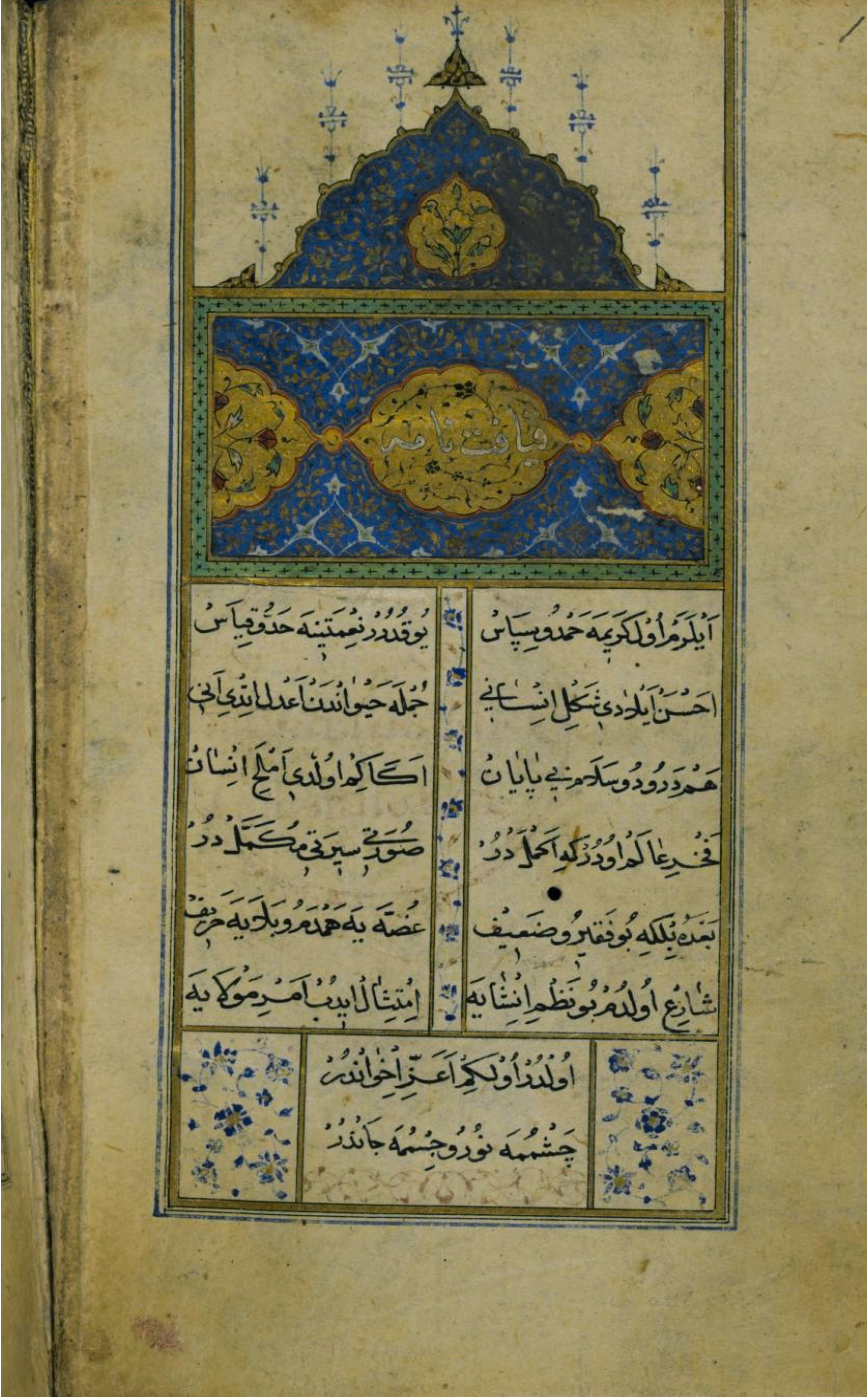 قیافت نامه
اَیْلَرَمْ اُولْ كَرِیمَه حَمْدُ و سِپَاسْ
یُوقْدُورُرْ نِعْمَتِینَه حَدُّ و قِیاسْ
اَحْسَنْ اَیْلَدِی شَكْلِ اِنْسَانِی
جُمْلَه حَیْوانْدَنْ اَعْدَلْ اِتْدِی اَنِی
هَمْ دَرُودُ و سَلَامِ بِی پَایَانْ
اَكَا كِمْ اُولْدِی اَمْلَحِ اِنْسَانْ
فَخْرِ عَالَمْ اُودُرْ كِه اَكْمَلْ دُرْ
صُورَتِی سِیرَتِی مُكَمَّلْ دُرْ
بَعْدَهُ بِلْكِه بُو فَقِیرُ و ضَعِیفْ
غُصَّه یَه هَمْدَمُ و بَلَایَه حَرِیفْ
شَارِعْ اُولْدُمْ بُو نَظْمِ اِنْشَایَه
اِمْتِثَالْ اِیدُبْ اَمْرِ مَوْلَایَه
اُولْدُرْ اُولْ كِمْ اَعَزِّ اِخْوَانْدُرْ
چَشْمُمَه نُورُ و جِسْمُمَه جَانْدُرْ